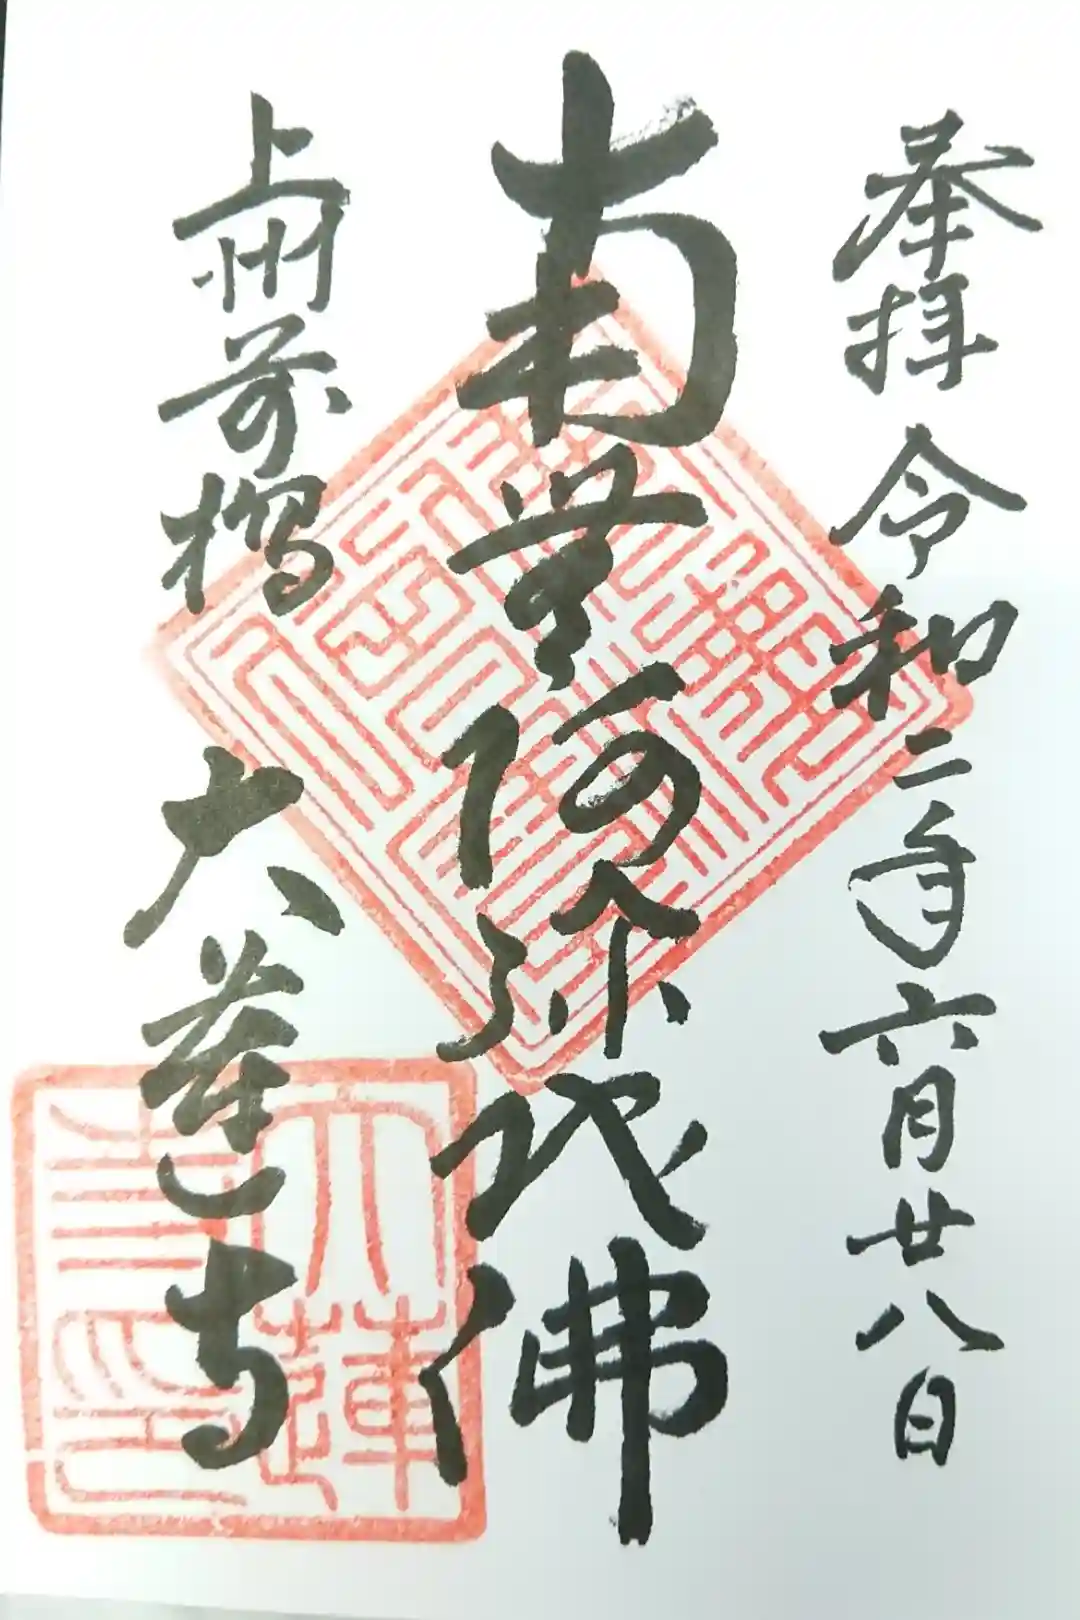 奉拝 令和二年六月廿八日
南無阿弥陀佛
上州前橋 大蓮寺
大蓮寺印